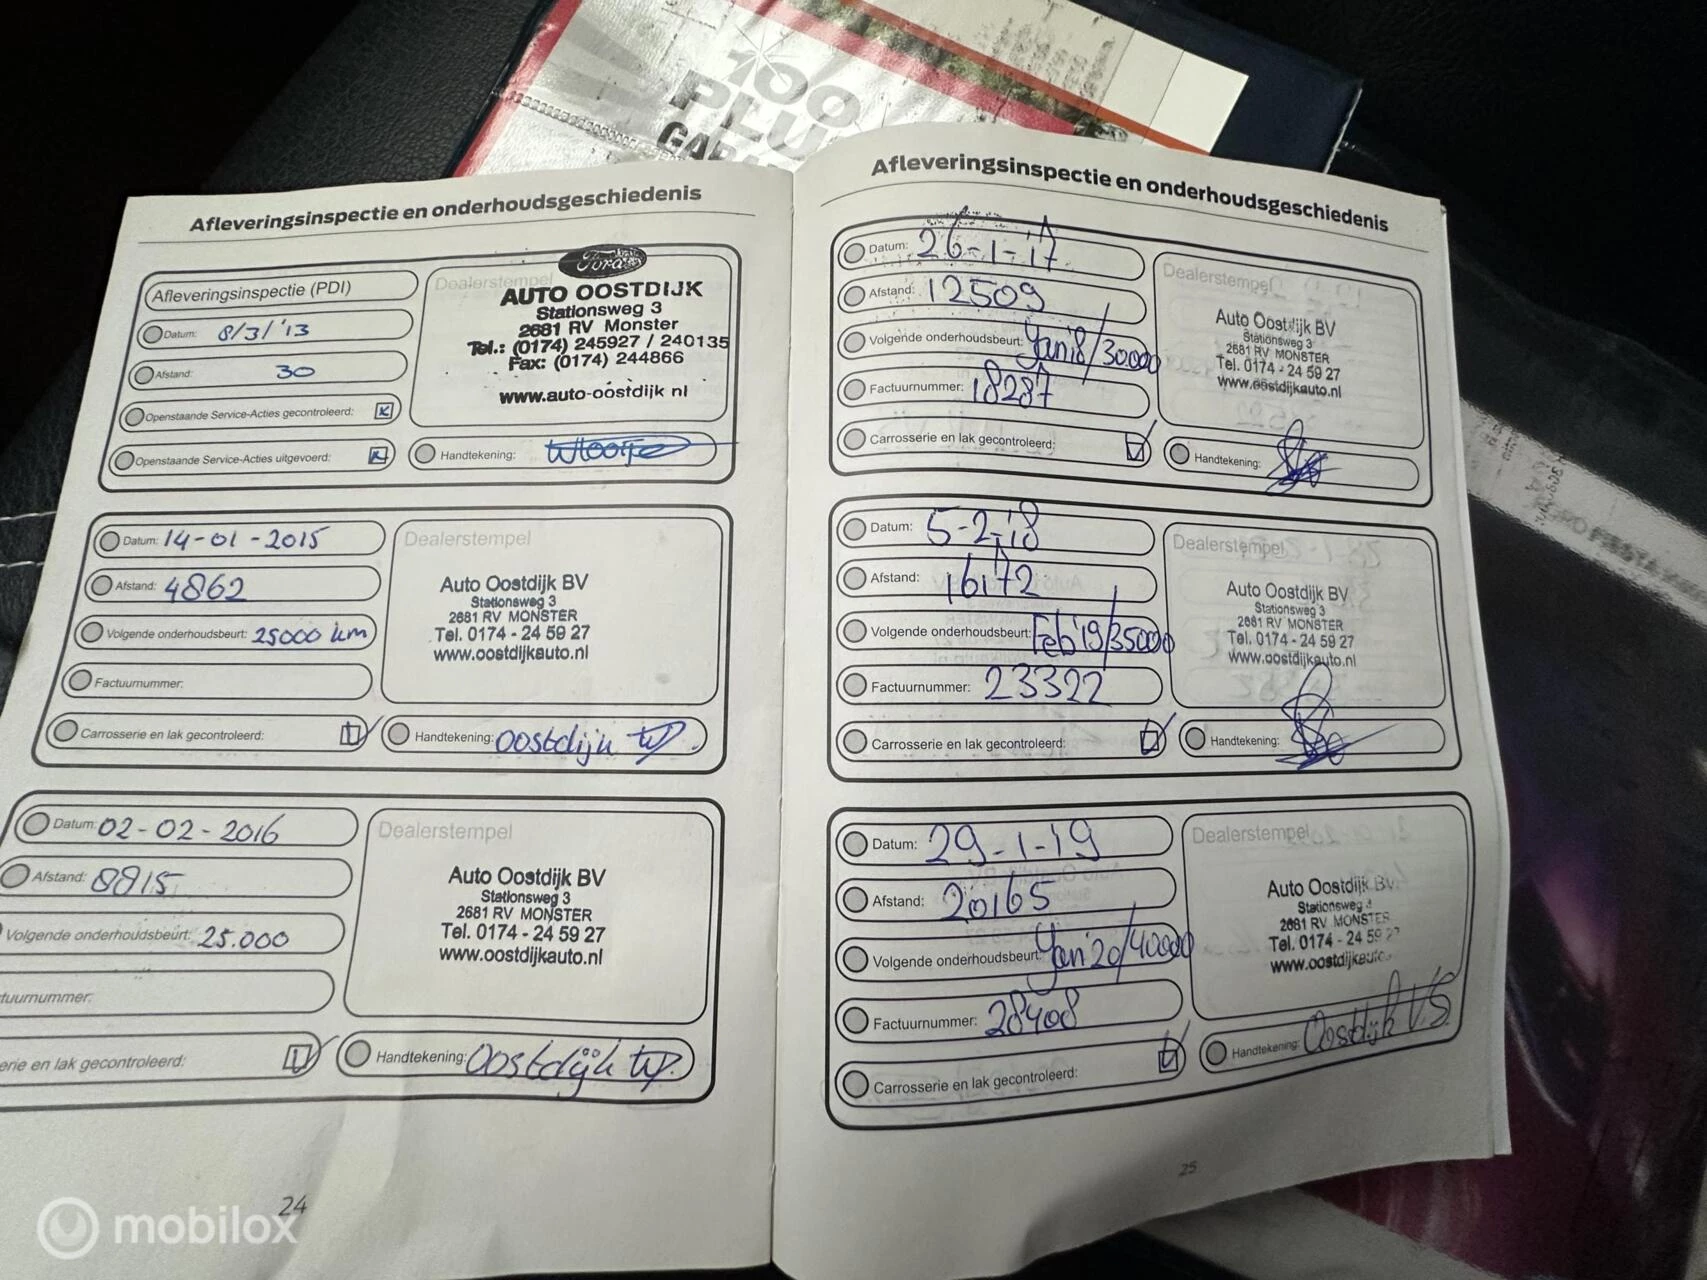 100
PLU
GARA
Afleveringsinspectie en onderhoudsgeschiedenis
Afleveringsinspectie (PDI)
Datum: 8/3/'13
Afstand: 30
Openstaande Service-Acties gecontroleerd:
Openstaande Service-Acties uitgevoerd:
Dealerstempel
Ford
AUTO OOSTDIJK
Stationsweg 3
2681 RV Monster
Tel.: (0174) 245927 / 240135
Fax: (0174) 244866
www.auto-oostdijk nl
Handtekening:
Datum: 14-01-2015
Afstand: 4862
Volgende onderhoudsbeurt: 25000 km
Factuurnummer:
Carrosserie en lak gecontroleerd:
Dealerstempel
Auto Oostdijk BV
Stationsweg 3
2681 RV MONSTER
Tel. 0174 - 24 59 27
www.oostdijkauto.nl
Handtekening: Oostdijk
Datum: 02-02-2016
Afstand: 8815
Volgende onderhoudsbeurt: 25.000
tuurnummer:
erie en lak gecontroleerd:
Dealerstempel
Auto Oostdijk BV
Stationsweg 3
2681 RV MONSTER
Tel. 0174 - 24 59 27
www.oostdijkauto.nl
Handtekening: Oostdijk
24
Afleveringsinspectie en onderhoudsgeschiedenis
Datum: 26-1-17
Afstand: 12509
Volgende onderhoudsbeurt: Jan 18/30000
Factuurnummer: 18287
Carrosserie en lak gecontroleerd:
Dealerstempel
Auto Oostdijk BV
Stationsweg 3
2681 RV MONSTER
Tel. 0174 - 24 59 27
www.oostdijkauto.nl
Handtekening:
Datum: 5-2-18
Afstand: 16172
Volgende onderhoudsbeurt: Feb'19/35000
Factuurnummer: 23322
Carrosserie en lak gecontroleerd:
Dealerstempel
Auto Oostdijk BV
Stationsweg 3
2681 RV MONSTER
Tel. 0174 - 24 59 27
www.oostdijkauto.nl
Handtekening:
Datum: 29-1-19
Afstand: 20165
Volgende onderhoudsbeurt: Jan'20/40000
Factuurnummer: 28408
Carrosserie en lak gecontroleerd:
Dealerstempel
Auto Oostdijk BV
Stationsweg 3
2681 RV MONSTER
Tel. 0174 - 24 59 27
www.oostdijkauto.
Handtekening: Oostdijk VS
25
mobilox